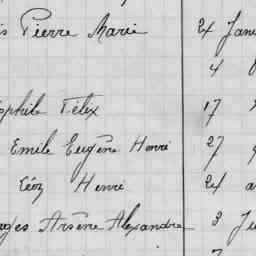 is Pierre Marie 24 Jan
4
éophile Félix 17
Emile Eugène Henri 27
Léon Henri 24 a
rges Arsène Alexandre 3 Ju